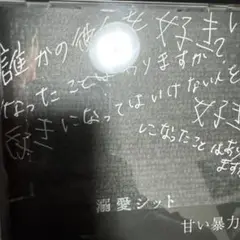 誰かの彼氏を好きに
なったことはありますか?
好きになってはいけない人を
好き
になったことはあり
ますか
溺愛シット
甘い暴力